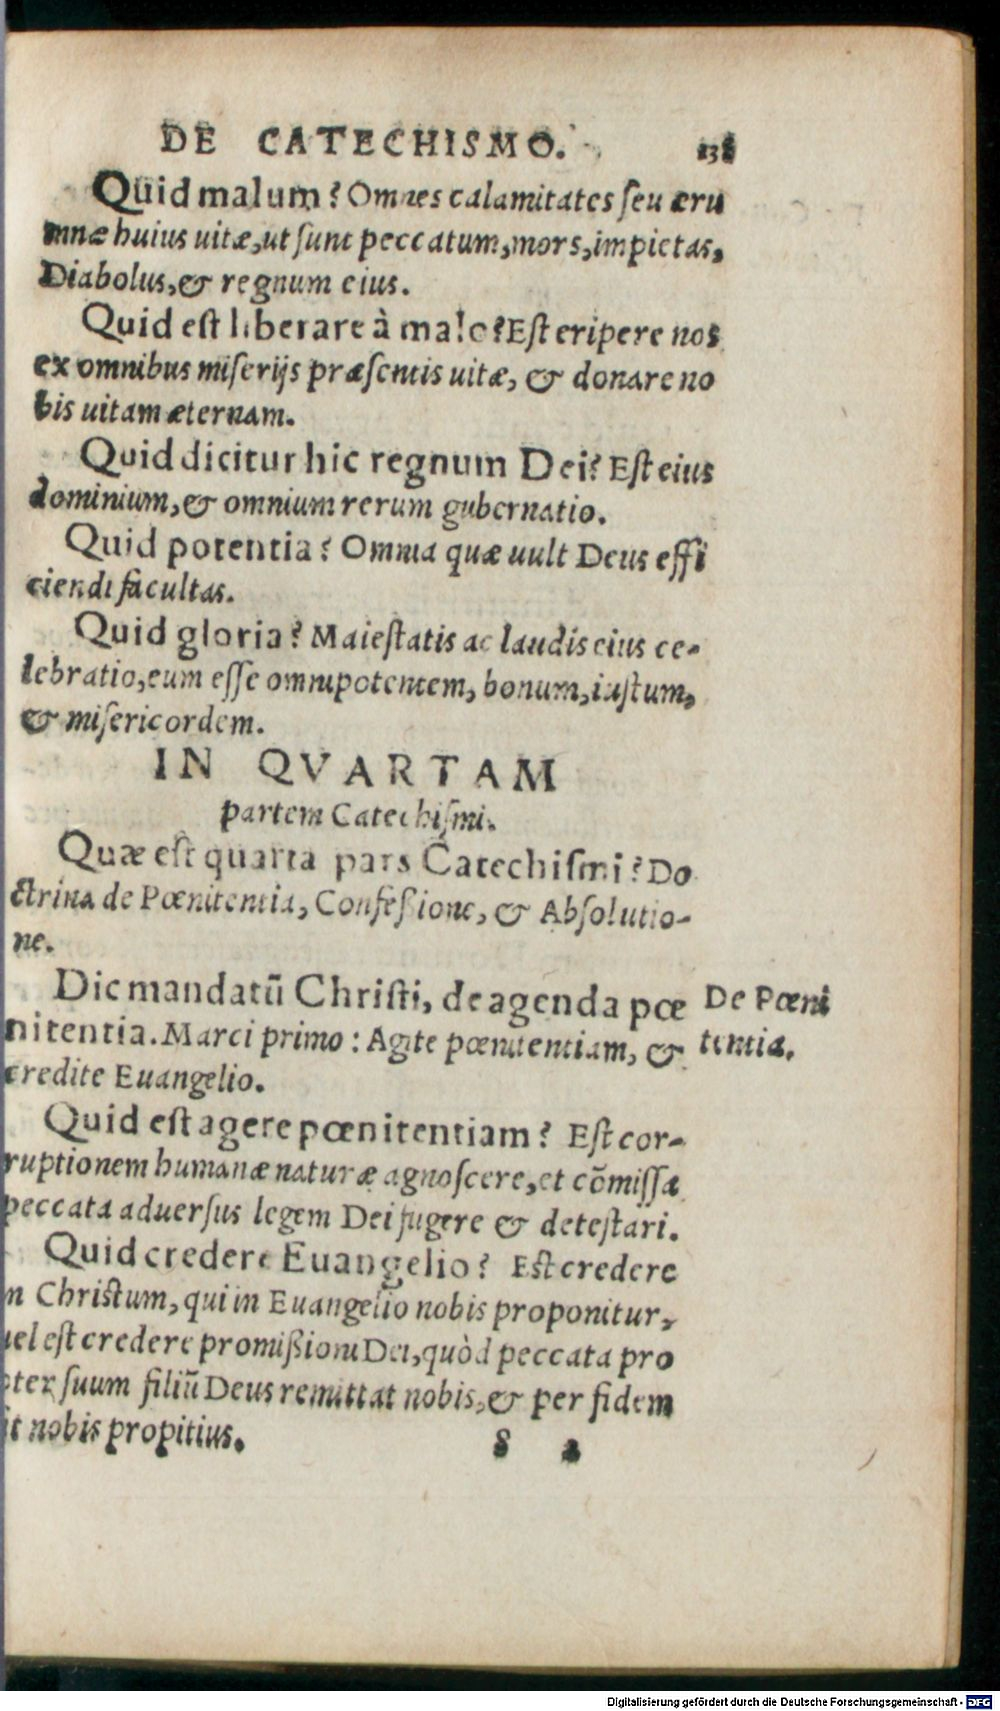 DE CATECHISMO.
Quid malum? Omnes calamitates seu æru
mnæ huius uitæ, ut sunt peccatum, mors, impietas,
Diabolus, & regnum eius.
Quid est liberare à malo? Est eripere nos
ex omnibus miserijs præsentis uitæ, & donare no
bis uitam æternam.
Quid dicitur hic regnum Dei? Est eius
dominium, & omnium rerum gubernatio.
Quid potentia? Omnia quæ uult Deus effi
ciendi facultas.
Quid gloria? Maiestatis ac laudis eius ce-
lebratio, eum esse omnipotentem, bonum, iustum,
& misericordem.
IN QVARTAM
partem Catechismi.
Quæ est quarta pars Catechismi? Do
ctrina de Pœnitentia, Confeßione, & Absolutio-
ne.
Dic mandatū Christi, de agenda pœ
nitentia. Marci primo: Agite pœnitentiam, &
credite Euangelio.
De Pœni
tentia.
Quid est agere pœnitentiam? Est cor-
ruptionem humanæ naturæ agnoscere, et cōmissa
peccata aduersus legem Dei fugere & detestari.
Quid credere Euangelio? Est credere
n Christum, qui in Euangelio nobis proponitur,
uel est credere promißioni Dei, quòd peccata pro
pter suum filiū Deus remittat nobis, & per fidem
it nobis propitius.
S 2
Digitalisierung gefördert durch die Deutsche Forschungsgemeinschaft - DFG